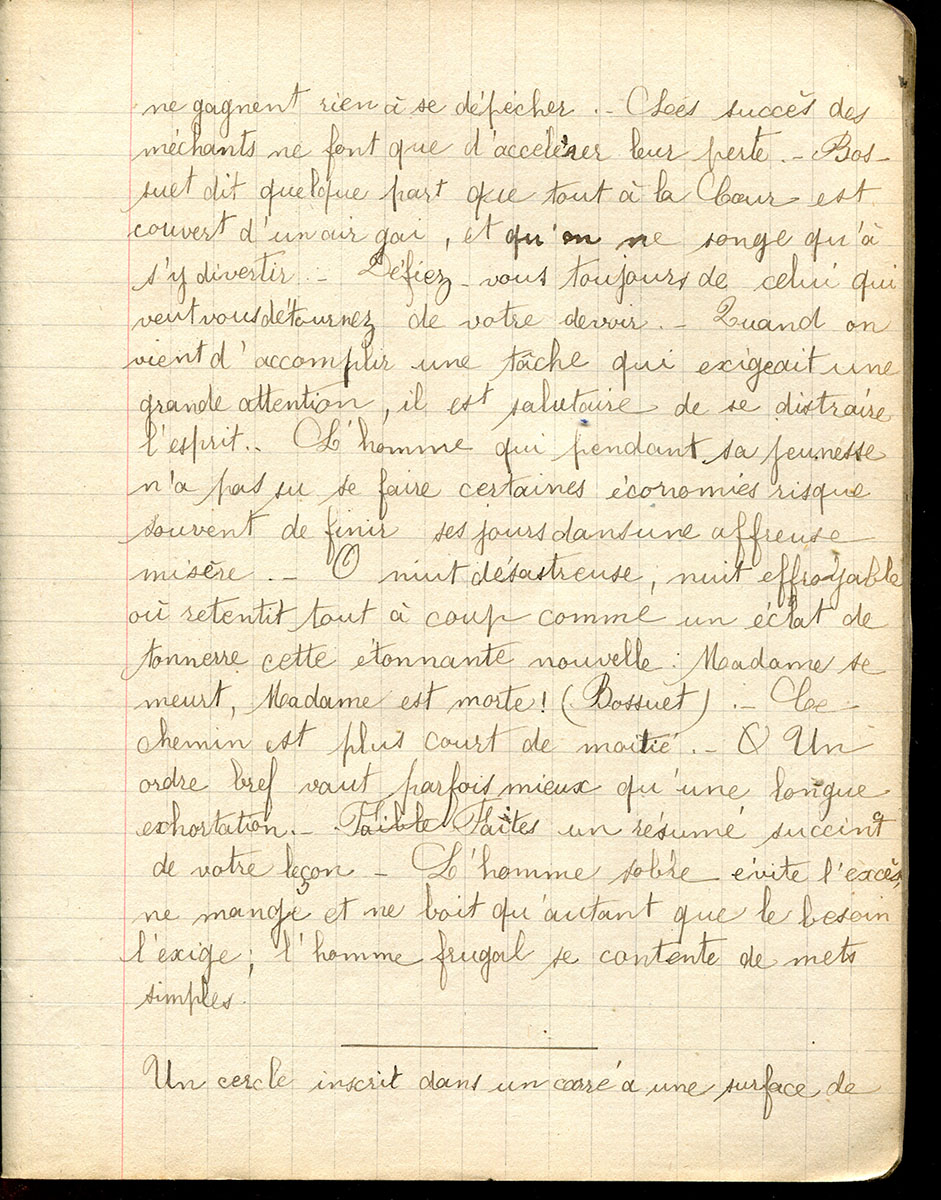 ne gagnent rien à se dépécher. - Les succès des
méchants ne font que d'accélérer leur perte. - Bos-
suet dit quelque part que tout à la Cour est
couvert d'un air gai, et qu'on ne songe qu'à
s'y divertir. - Défiez-vous toujours de celui qui
veut vous détournez de votre devoir. - Quand on
vient d'accomplir une tâche qui exigeait une
grande attention, il est salutaire de se distraire
l'esprit. - L'homme qui pendant sa jeunesse
n'a pas su se faire certaines économies risque
souvent de finir ses jours dans une affreuse
misère. - O niut désastreuse, nuit effroyable
où retentit tout à coup comme un éclat de
tonnerre cette étonnante nouvelle : Madame se
meurt, Madame est morte! (Bossuet). - Le
chemin est plus court de moitié. - O Un
ordre bref vaut parfois mieux qu'une longue
exhortation. - Faible Faites un résumé succinct
de votre leçon - L'homme sobre évite l'excès,
ne mange et ne boit qu'autant que le besoin
l'exige; l'homme frugal se contente de mets
simples.
Un cercle inscrit dans un carré a une surface de